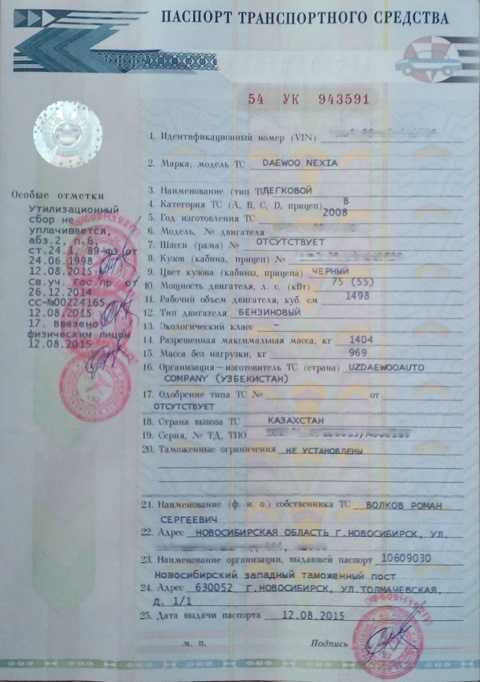 ПАСПОРТ ТРАНСПОРТНОГО СРЕДСТВА
54 УК 943591
1. Идентификационный номер (VIN)
2. Марка, модель ТС DAEWOO NEXIA
3. Наименование (тип ТС) ЛЕГКОВОЙ
4. Категория ТС (A, B, C, D, прицеп) B
5. Год изготовления ТС 2008
6. Модель, № двигателя
7. Шасси (рама) № ОТСУТСТВУЕТ
8. Кузов (кабина, прицеп) №
9. Цвет кузова (кабины, прицепа) ЧЕРНЫЙ
10. Мощность двигателя, л. с. (кВт) 75 (55)
11. Рабочий объем двигателя, куб. см 1498
12. Тип двигателя БЕНЗИНОВЫЙ
13. Экологический класс –
14. Разрешенная максимальная масса, кг 1404
15. Масса без нагрузки, кг 969
16. Организация–изготовитель ТС (страна) UZDAEWOOAUTO
COMPANY (УЗБЕКИСТАН)
17. Одобрение типа ТС № от
ОТСУТСТВУЕТ
18. Страна вывоза ТС КАЗАХСТАН
19. Серия, № ТД, ТПО
20. Таможенные ограничения НЕ УСТАНОВЛЕНЫ
21. Наименование (ф. и. о.) собственника ТС ВОЛКОВ РОМАН
СЕРГЕЕВИЧ
22. Адрес НОВОСИБИРСКАЯ ОБЛАСТЬ Г.НОВОСИБИРСК, УЛ.
23. Наименование организации, выдавшей паспорт 10609030
Новосибирский западный таможенный пост
24. Адрес 630052 Г.НОВОСИБИРСК, УЛ.ТОЛМАЧЕВСКАЯ,
Д. 1/1
25. Дата выдачи паспорта 12.08.2015
М. П. Подпись
Особые отметки
Утилизационный
сбор не
уплачивается,
абз.2, п.6,
ст.24.1, 89-ФЗ от
24.06.1998
12.08.2015
Св.уч. Гос.пр. от
26.12.2014
СС-№00224165
12.08.2015
17. Ввезено
физическим лицом
12.08.2015